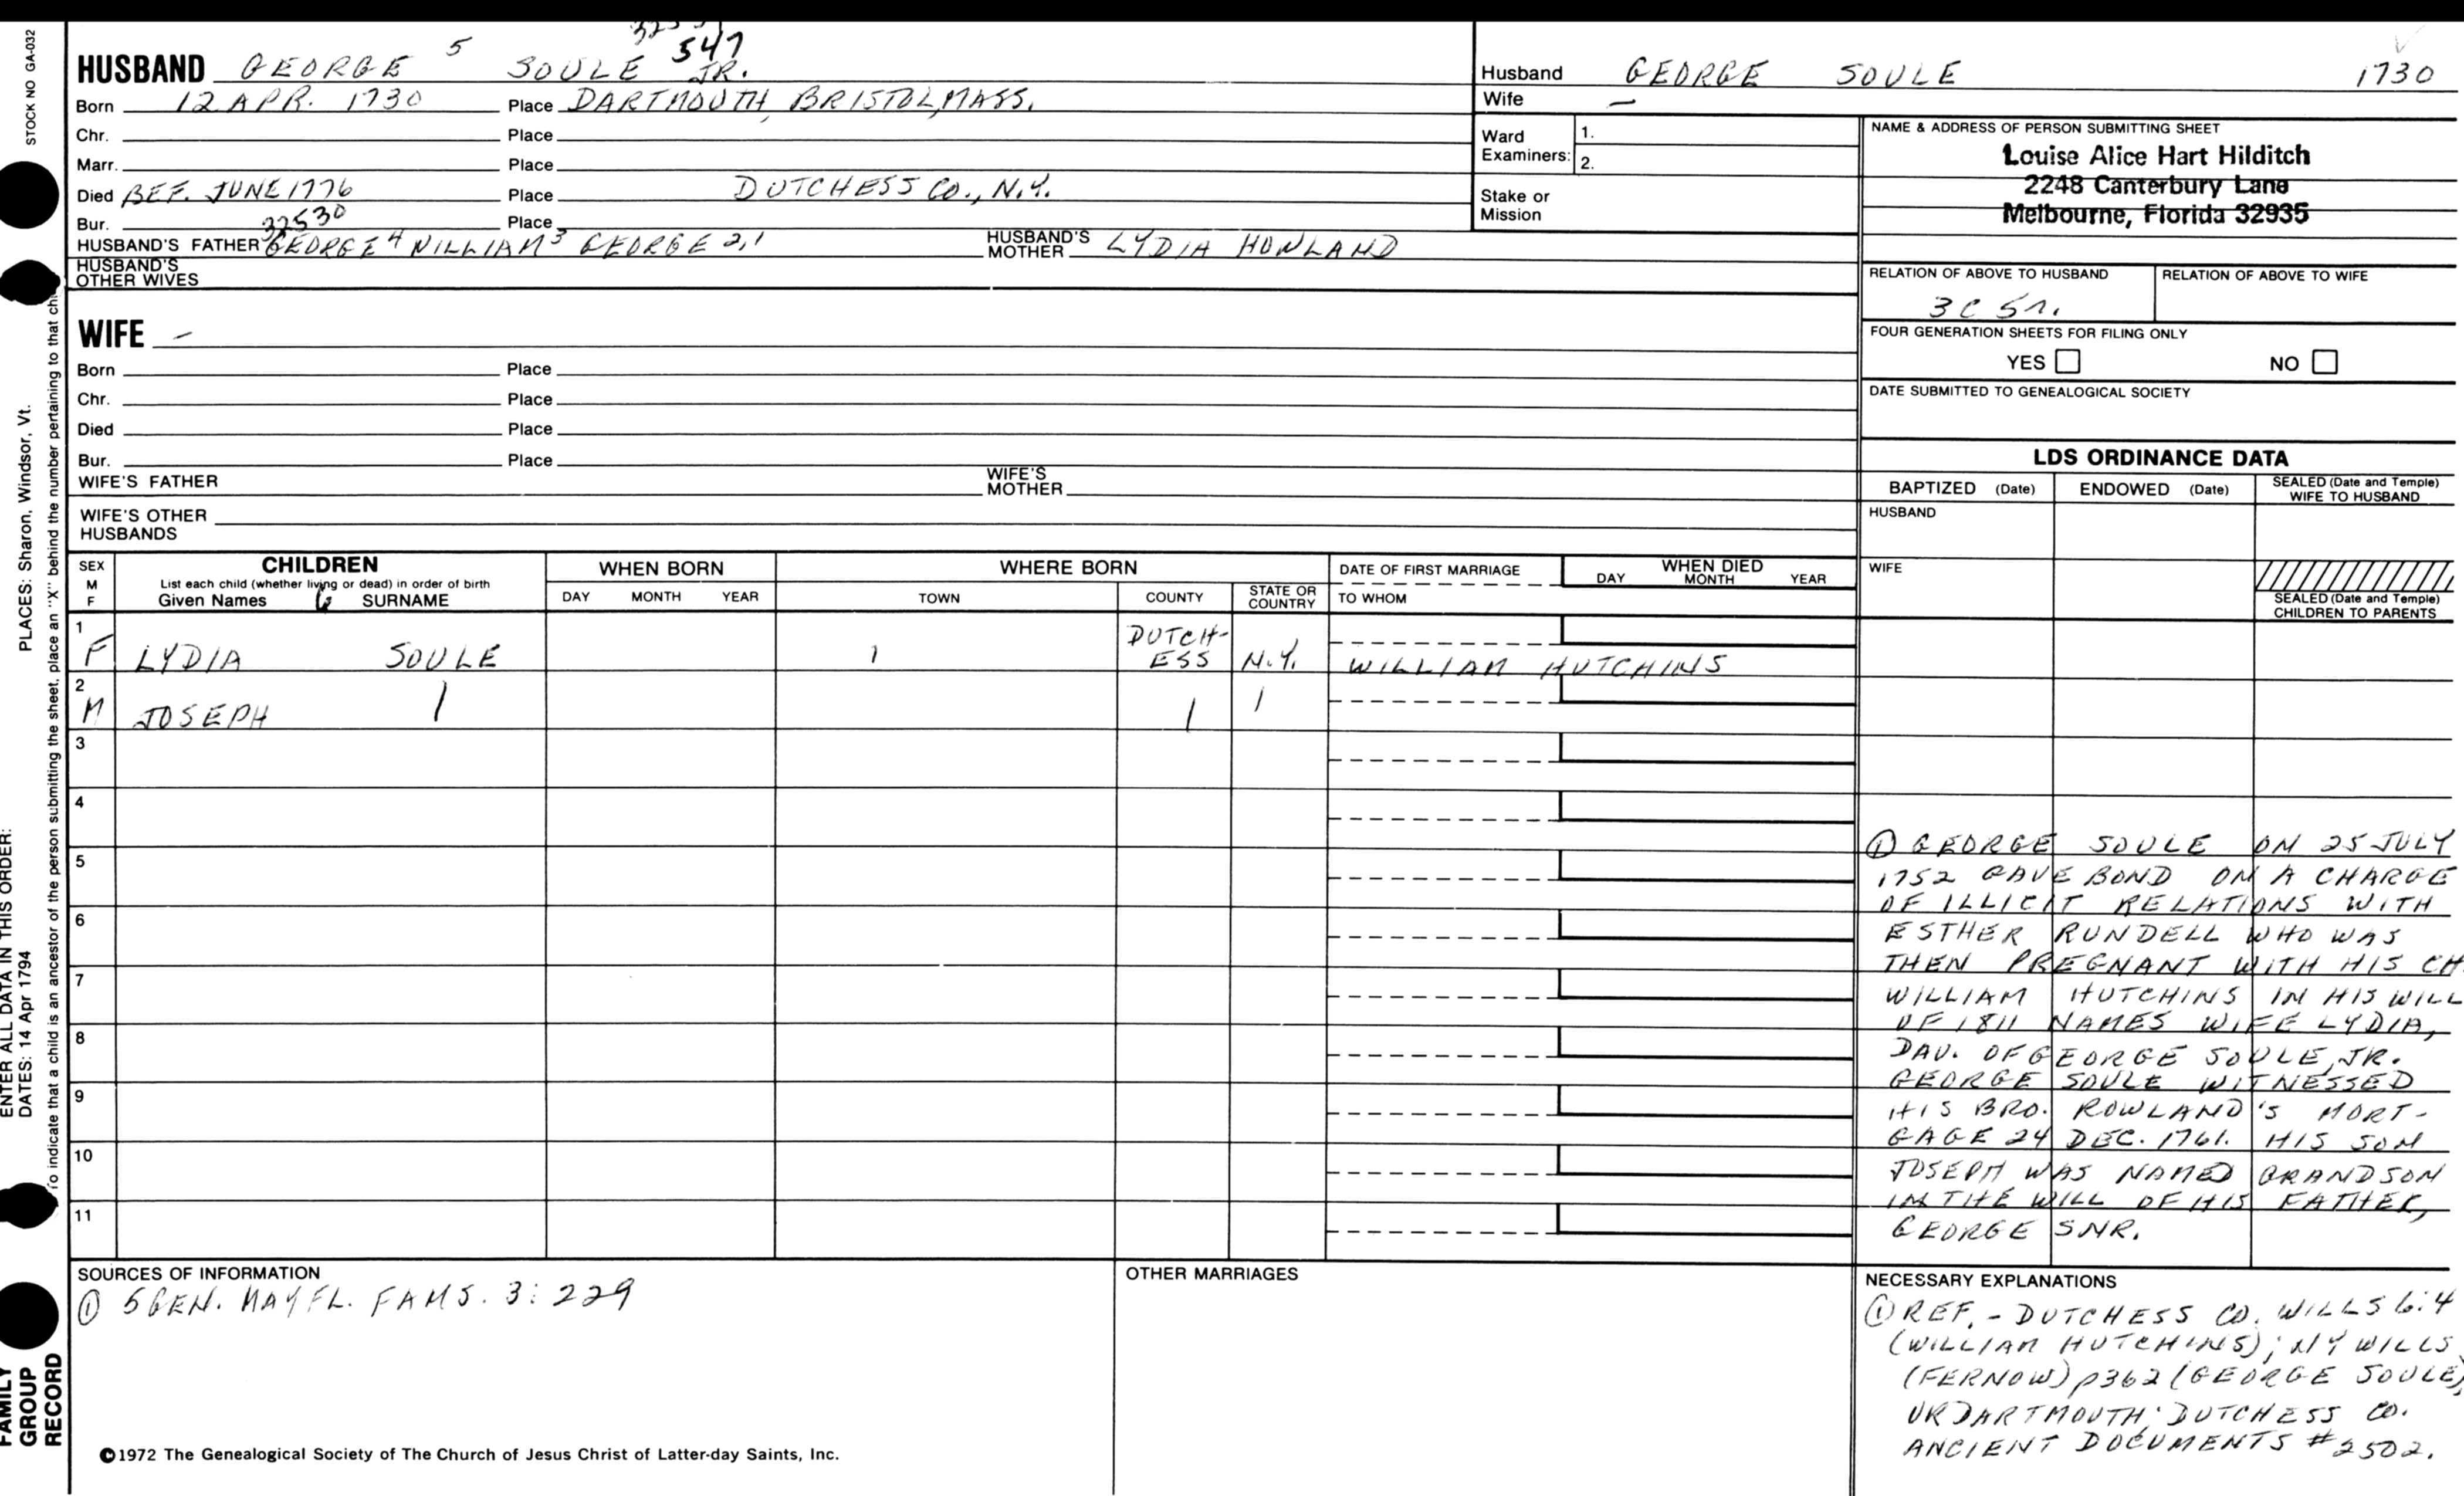 STOCK NO GA-032
547
HUSBAND GEORGE 5 SOULE JR.
Born 12 APR. 1730 Place DARTMOUTH, BRISTOL, MASS.
Chr. Place
Marr. Place
Died BEF. JUNE 1776 Place DUTCHESS CO., N.Y.
Bur. Place
32530
HUSBAND'S FATHER GEORGE 4 WILLIAM 3 GEORGE 2,1 HUSBAND'S MOTHER LYDIA HOWLAND
HUSBAND'S
OTHER WIVES
WIFE -
Born Place
Chr. Place
Died Place
Bur. Place
WIFE'S FATHER WIFE'S MOTHER
WIFE'S OTHER
HUSBANDS
Husband GEORGE SOULE 1730
Wife -
Ward
Examiners: 1.
2.
Stake or
Mission
NAME & ADDRESS OF PERSON SUBMITTING SHEET
Louise Alice Hart Hilditch
2248 Canterbury Lane
Melbourne, Florida 32935
RELATION OF ABOVE TO HUSBAND RELATION OF ABOVE TO WIFE
3C 5r.
FOUR GENERATION SHEETS FOR FILING ONLY
YES NO
DATE SUBMITTED TO GENEALOGICAL SOCIETY
LDS ORDINANCE DATA
BAPTIZED (Date) ENDOWED (Date) SEALED (Date and Temple)
WIFE TO HUSBAND
HUSBAND
WIFE
SEALED (Date and Temple)
CHILDREN TO PARENTS
SEX
M
F
CHILDREN
List each child (whether living or dead) in order of birth
Given Names SURNAME
WHEN BORN
DAY MONTH YEAR
WHERE BORN
TOWN COUNTY STATE OR COUNTRY
DATE OF FIRST MARRIAGE
TO WHOM
WHEN DIED
DAY MONTH YEAR
1 F LYDIA SOULE 1 DUTCH-
ESS N.Y. WILLIAM HUTCHINS
2 M JOSEPH | | |
3
4
5
6
7
8
9
10
11
① GEORGE SOULE ON 25 JULY
1752 GAVE BOND ON A CHARGE
OF ILLICIT RELATIONS WITH
ESTHER RUNDELL WHO WAS
THEN PREGNANT WITH HIS CH.
WILLIAM HUTCHINS IN HIS WILL
OF 1811 NAMES WIFE LYDIA,
DAU. OF GEORGE SOULE, JR.
GEORGE SOULE WITNESSED
HIS BRO. ROWLAND'S MORT-
GAGE 24 DEC. 1761. HIS SON
JOSEPH WAS NAMED GRANDSON
IN THE WILL OF HIS FATHER,
GEORGE SNR.
SOURCES OF INFORMATION
① 5 GEN. MAYFL. FAMS. 3:229
OTHER MARRIAGES
NECESSARY EXPLANATIONS
① REF. - DUTCHESS CO. WILLS 6:4
(WILLIAM HUTCHINS); NY WILLS
(FERNOW) p362 (GEORGE SOULE)
VR DARTMOUTH; DUTCHESS CO.
ANCIENT DOCUMENTS #2502.
©1972 The Genealogical Society of The Church of Jesus Christ of Latter-day Saints, Inc.
FAMILY
GROUP
RECORD
ENTER ALL DATA IN THIS ORDER:
DATES: 14 Apr 1794
PLACES: Sharon, Windsor, Vt.
To indicate that a child is an ancestor of the person submitting the sheet, place an "X" behind the number pertaining to that